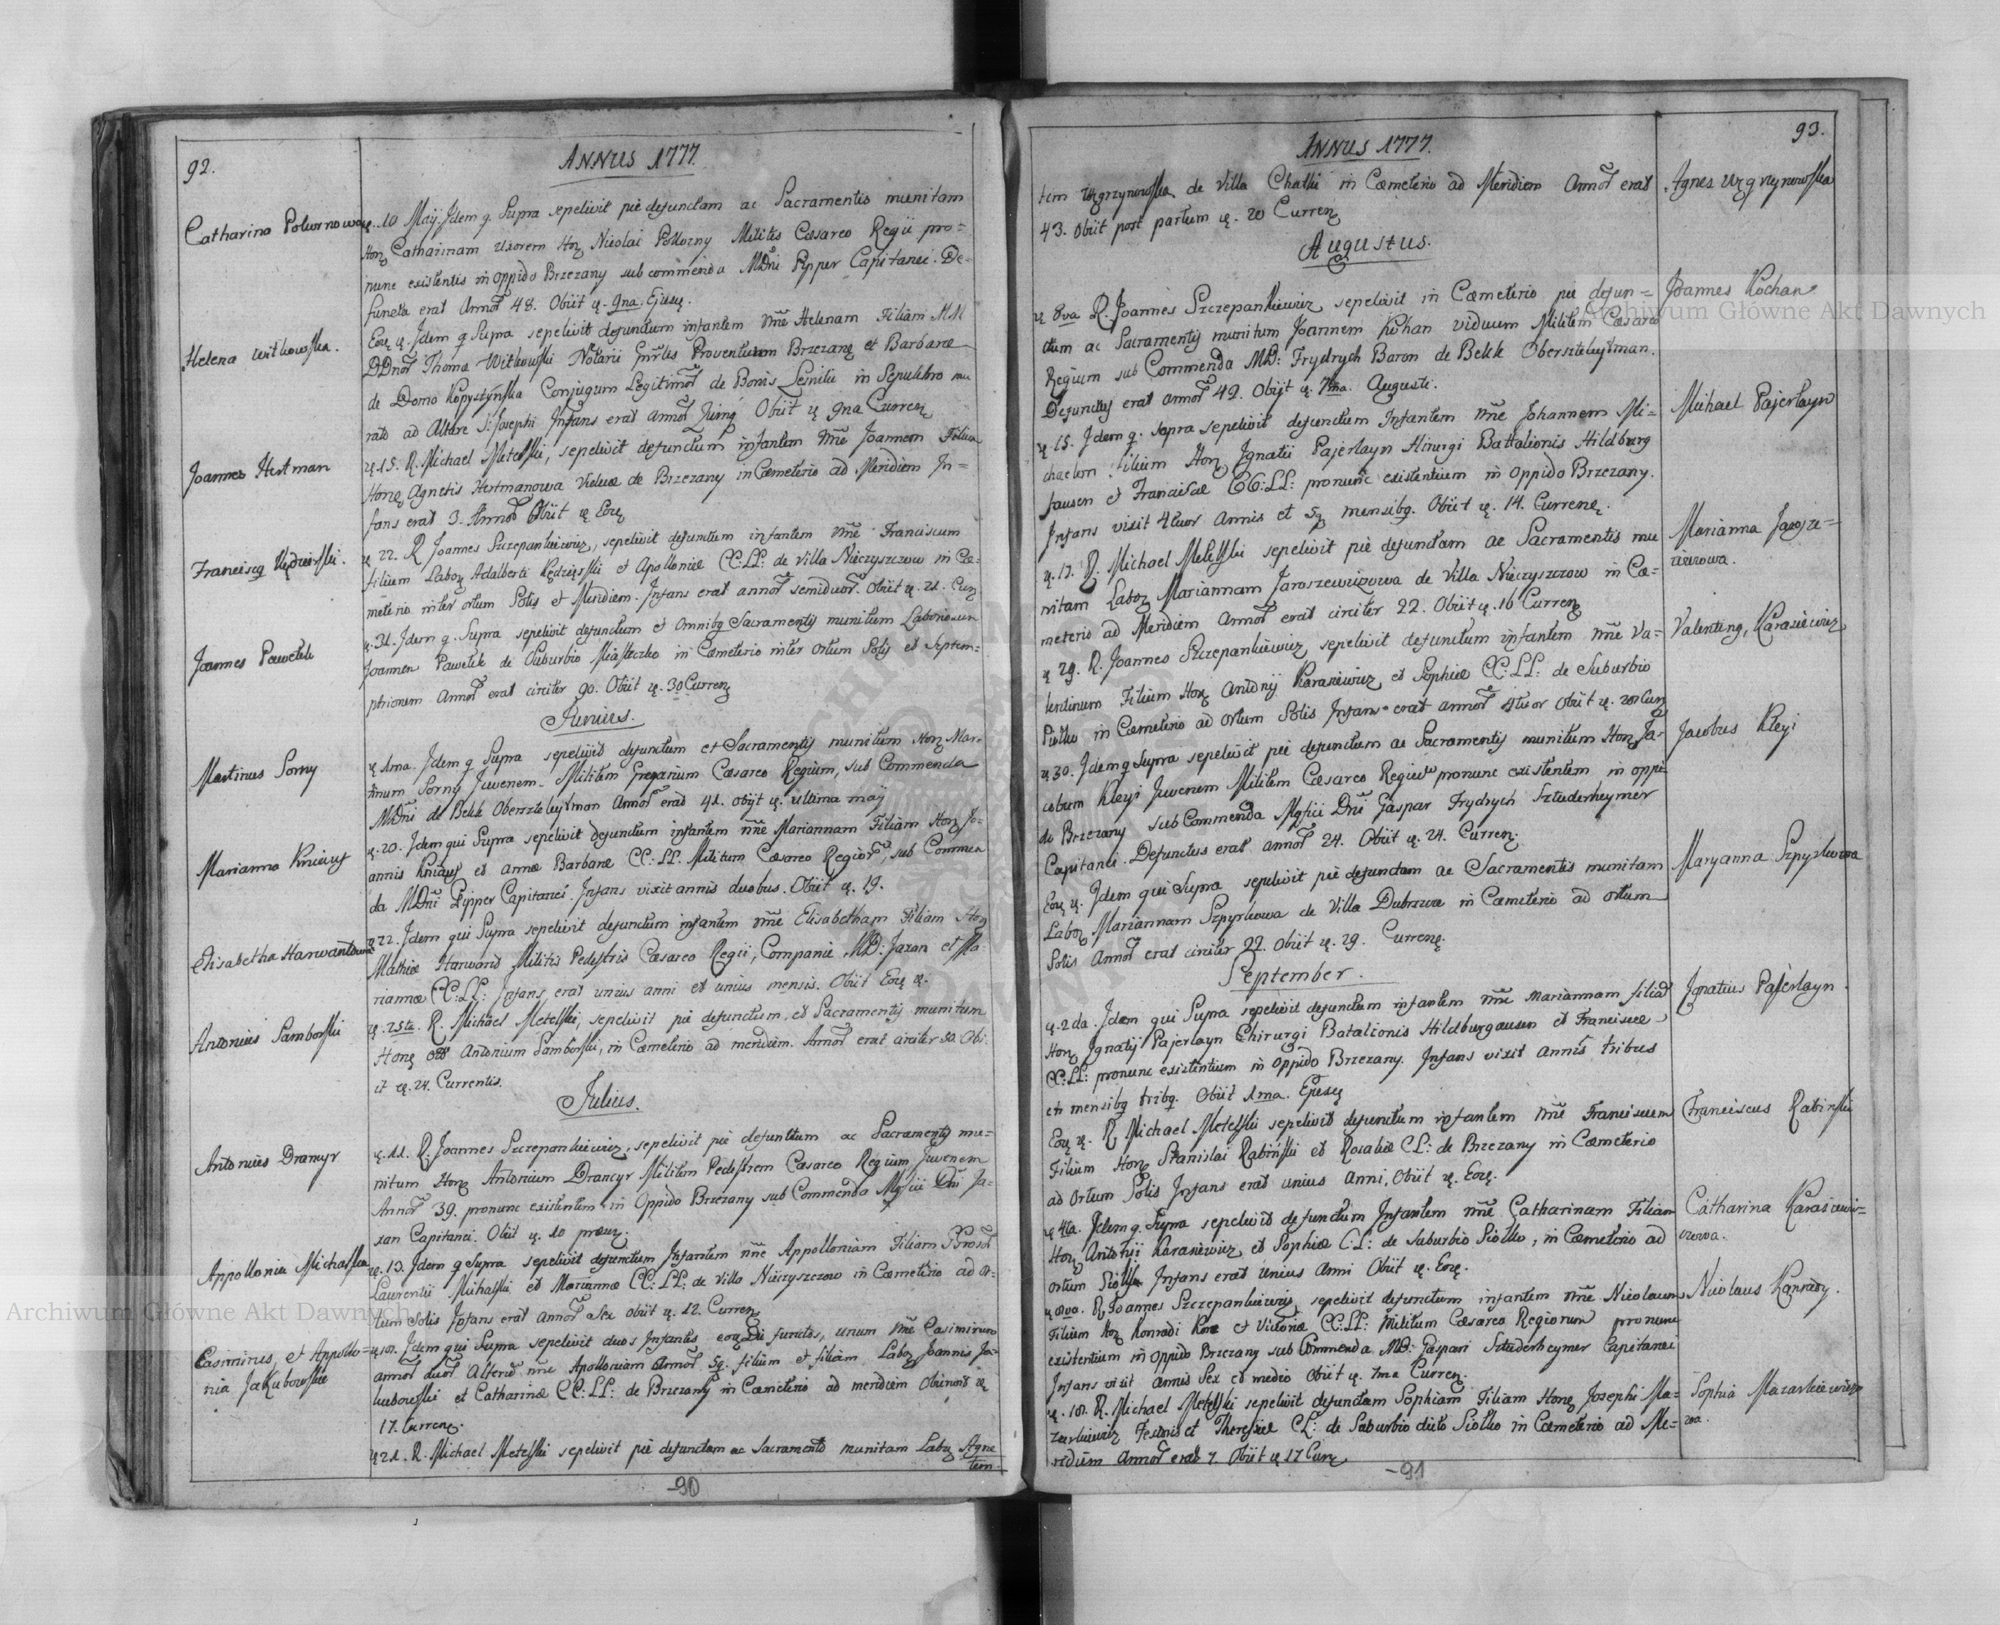 92.
ANNUS 1777.
Catharina Polwrnowa
ę. 10 Maij. Jdem q. Supra sepelivit pie defunctam ac Sacramentis munitam
Hon Catharinam Uxorem Hon Nicolai Pollozny Militis Cæsareo Regii pro=
nunc existentis in oppido Brzezany sub commenda MDni Pipper Capitanei. De=
functa erat Annor 48. Obiit ę. 9na. Ejusę.
Helena Witkowska.
Eoę ę. Jdem q Supra sepelivit defunctum infantem nne Helenam Filiam MM
DDnor Thomæ Witkowski Notarii gnrlis Proventuum Brzezanę et Barbaræ
de Domo Kopystynska Conjugum Legitimor de Bonis Lesniki in Sepulchro mu
rato ad Altare S. Josephi Infans erat annor Obiit ę 9na Curren
Joannes Hertman
ę. 15. R. Michael Metelski, sepelivit defunctum infantem nne Joannem Filium
Honę Agnetis Hertmanowa Viduæ de Brzezany in Cæmeterio ad Meridiem In=
fans erat 3. Annor Obiit ę Eoę
Franciscq Kędzierski.
ę 22. R Joannes Szczepankiewicz, sepelivit defunctum infantem nne Franciscum
filium Labor Adalberti Kędzierski et Apolloniæ CC:LL: de Villa Nieczyszczow in Cæ=
meterio inter ortum Solis et Meridiem. Infans erat annor semiduor. Obiit ę. 21. Curr
Joannes Pawełek
ę. 31. Jdem q. Supra sepelivit defunctum et omnibq Sacramentis munitum Laboriosum
Joannem Pawełek de Suburbio Miasteczko in Cæmeterio inter ortum Solis et Septem=
ptrionem Annor erat circiter 90. Obiit ę. 30 Curren
Junius.
Martinus Sorny
ę 1ma. Jdem q Supra sepelivit defunctum et Sacramentis munitum Hon Mar=
tinum Sorny Juvenem. Militem Gregarium Cæsareo Regium, sub Commenda
MDni de Bekk Oberszteleytman Annor erat 41. obijt ę. ultima maij
Marianna Kniauf
ę. 20. Jdem qui Supra sepelivit defunctum infantem nne Mariannam Filiam Hon Jo=
annis Kniauf et annæ Barbaræ CC: LL. Militum Cæsareo Regior, sub Commen
da MDni Pipper Capitanei. Infans vixit annis duobus. Obiit ę. 19.
Elisabetha Harwantowna
ę 22. Jdem qui Supra sepelivit defunctum infantem nne Elisabetham Filiam Hon
Mathiæ Harwand Militis Pedestris Cæsareo Regii, Companiæ MD: Jaxan et Ma=
riannæ CC:LL: Infans erat unius anni et unius mensis. Obiit Eoę ę.
Antonius Samborski
ę. 23tia. R. Michael Metelski, sepelivit pie defunctum, et Sacramentis munitum
Honę Antonium Samborski, in Cæmeterio ad meridiem. Annor erat circiter 50. Obi=
it ę. 24. Currentis.
Julius.
Antonius Drancyr
ę. 11. R. Joannes Szczepankiewicz, sepelivit pie defunctum ac Sacramentis mu=
nitum Hon Antonium Drancyr Militem Pedestrem Cæsareo Regium Juvenem
Annor 39. pronunc existentem in Oppido Brzezany sub Commenda Mgfici Dni Ja=
xan Capitanei. Obiit ę. 10 præuz.
Appollonia Michalska
ę. 13. Jdem q Supra sepelivit defunctum Infantem nne Appolloniam Filiam
Laurentii Mihalski, et Mariannæ CC: LL: de Villa Nieczyszczow in Cæmeterio ad or=
tum Solis Infans erat annor sex obiit ę. 12. Curren
Casimirus, et Appollo=
nia Jakubowskie
ę. 18. Jdem qui Supra sepelivit duos Infantes eoę functos, unum nne Casimirum
annor duor Alteru nne Apolloniam Annor 5q. filium et filiam Labor Joannis Ja=
kubowski et Catharinæ CC: LL: de Brzezany in Cæmeterio ad meridiem Obierunt ę
17. Curren.
ę 21. R. Michael Metelski sepelivit pie defunctam ac Sacramento munitam Labor Agne
tem.
-90
93.
ANNUS 1777.
tem Węgrzynowska de Villa Chatki in Cæmeterio ad Meridiem Annor erat
43. Obiit post partum ę. 20 Curren
Agnes Węgrzynowska
Augustus.
Joannes Kochan
ę 8va R. Joannes Szczepankiewicz sepelivit in Cæmeterio pie defun=
ctum ac Sacramentis munitum Joannem Kohan viduum Militem Cæsareo
Regium sub Commenda MD: Frydrych Baron de Bekk Oberszteleytman.
Defunctus erat annor 49. Obijt ę. 7ma. Augusti.
Michael Pajerlayn
ę 15. Jdem q. supra sepelivit defunctum Infantem nne Johannem Mi=
chaelem filium Hon Ignatii Pajerlayn Hirurgi Battalionis Hildburg
hausen et Franciscæ CC:LL: pronunc existentium in oppido Brzezany.
Infans vixit 4tuor Annis et 5q mensibq. Obiit ę. 14. Currenę.
Marianna Jarosze=
wiczowa.
ę. 17. R. Michael Metelski sepelivit pie defunctam ac Sacramentis mu
nitam Labor Mariannam Jaroszewiczowa de Villa Nieczyszczow in Cæ=
meterio ad Meridiem Annor erat circiter 22. Obiit ę. 16 Curren
Valentinq Karasiewicz
ę 29. R. Joannes Szczepankiewicz sepelivit defunctum infantem nne Va=
lentinum Filium Hon Antonij Karasiewicz et Sophiæ CC:LL: de Suburbio
Siolko in Cæmeterio ad ortum Solis Infans erat annor 4tuor obiit ę. 28 Curr
Jacobus Kleyi
ę 30. Jdem q Supra sepelivit pie defunctum ac Sacramentis munitum Hon Ja=
cobum Kleyi Juvenem Militem Cæsareo Regium pronunc existentem in oppi
do Brzezany sub Commenda Mgfici Dni Gaspar Frydrych Sztuderheymer
Capitanei. Defunctus erat annor 24. Obiit ę. 24. Curren.
Maryanna Szpyrkowa
Eoę ę. Jdem qui Supra sepelivit pie defunctam ac Sacramentis munitam
Labor Mariannam Szpyrkowa de Villa Dubszcze in Cæmeterio ad ortum
Solis Annor erat circiter 22. Obiit ę. 29. Currenę.
September.
Ignatius Pajerlayn.
ę. 2da. Jdem qui Supra sepelivit defunctum infantem nne Mariannam filia
Hon Ignatij Pajerlayn Chirurgi Batalionis Hildburgausen et Franciscæ
CC:LL: pronunc existentium in oppido Brzezany. Infans vixit annis tribus
et mensibq tribq. Obiit 1ma. Ejusę
Franciscus Rabinski
Eoę ę. R Michael Metelski sepelivit defunctum infantem nne Franciscum
Filium Hon Stanislai Rabinski et Rosaliæ CL: de Brzezany in Cæmeterio
ad Ortum Solis Infans erat unius Anni, Obiit ę. Eoę.
Catharina Karasiewi=
czowa.
ę 4ta. Jdem q. Supra sepelivit defunctum Infantem nne Catharinam Filiam
Hon Antonij Karasiewicz et Sophiæ C:L: de Suburbio Siolko, in Cæmeterio ad
ortum Solis Infans erat Unius Anni Obiit ę. Eoę.
Nicolaus Konrady.
ę 8va. R. Joannes Szczepankiewicz sepelivit defunctum infantem nne Nicolaum
Filium Hon Konradi et Victoriæ CC:LL: Militum Cæsareo Regiorum pronunc
existentium in oppido Brzezany sub Commenda MD: Gaspari Sztuderheymer Capitanei
Infans vixit annis Sex et medio Obiit ę. 7ma Curren.
Sophia Mazarkiewiczo
wa.
ę. 18. R. Michael Metelski sepelivit defunctam Sophiam Filiam Hon Josephi Ma=
zarkiewicz Textoris et Theresiæ CL: de Suburbio dicto Siolko in Cæmeterio ad Me=
ridiem Annor erat 7 Obiit ę 17 Curr
-91
Archiwum Główne Akt Dawnych
Archiwum Główne Akt Dawnych